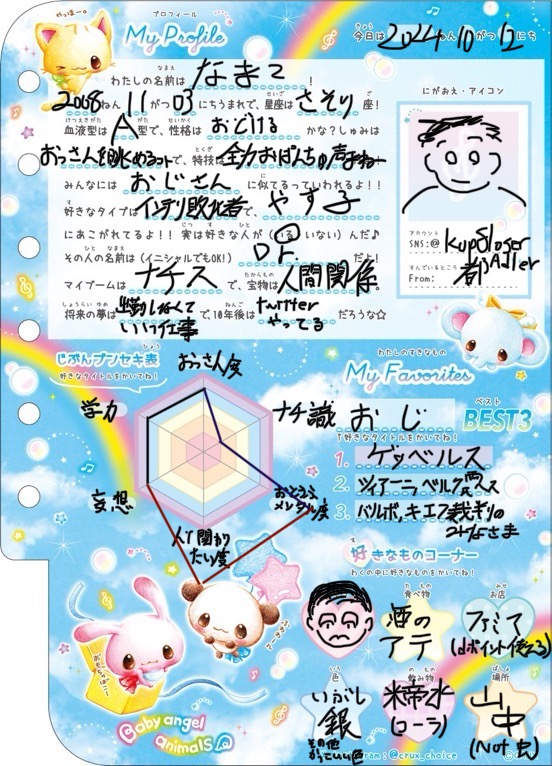 やっほー。
プロフィール
My Profile
今日は 2024ねん 10がつ 12にち
わたしの名前は なまこ !
2008ねん 11がつ 03にちうまれで、星座は さそり 座!
血液型は A 型で、性格は おどける かな?しゅみは
おっさんを眺めるコトで、特技は 全力おぱんちゅの声まね
みんなには おじさん に似てるっていわれるよ!!
好きなタイプは インテリ敗北者で、 やす子
にあこがれてるよ!! 実は好きな人が(いる いない)んだ♪
その人の名前は(イニシャルでもOK!) だよ!
マイブームは ナチス で、宝物は 人間関係
将来の夢は 出勤しなくて いい仕事 で、10年後は twitter やってる だろうな☆
にがおえ・アイコン
アカウント
SNS:@ kup8loser
すんでいるところ
From: 都Adler
じぶんブンセキ表
好きなタイトルをかいてね!
おっさん度
ナチ識
おとうふメンタル度
人と関わりたい度
妄想
学力
わたしのすきなもの
My Favorites
おじ
ベスト
BEST3
↑好きなタイトルをかいてね!
1. ゲッベルス
2.
3.
好きなものコーナー
わくの中に好きなものをかいてね!
食べ物
酒のアテ
お店
ファミマ
(dポイント使える)
色
いぶし銀
その他かっこいい色
飲み物
(コーラ)
場所
山中
(Not 虫)
おもちゃばこ
@aby angel animals@
@crux_choice